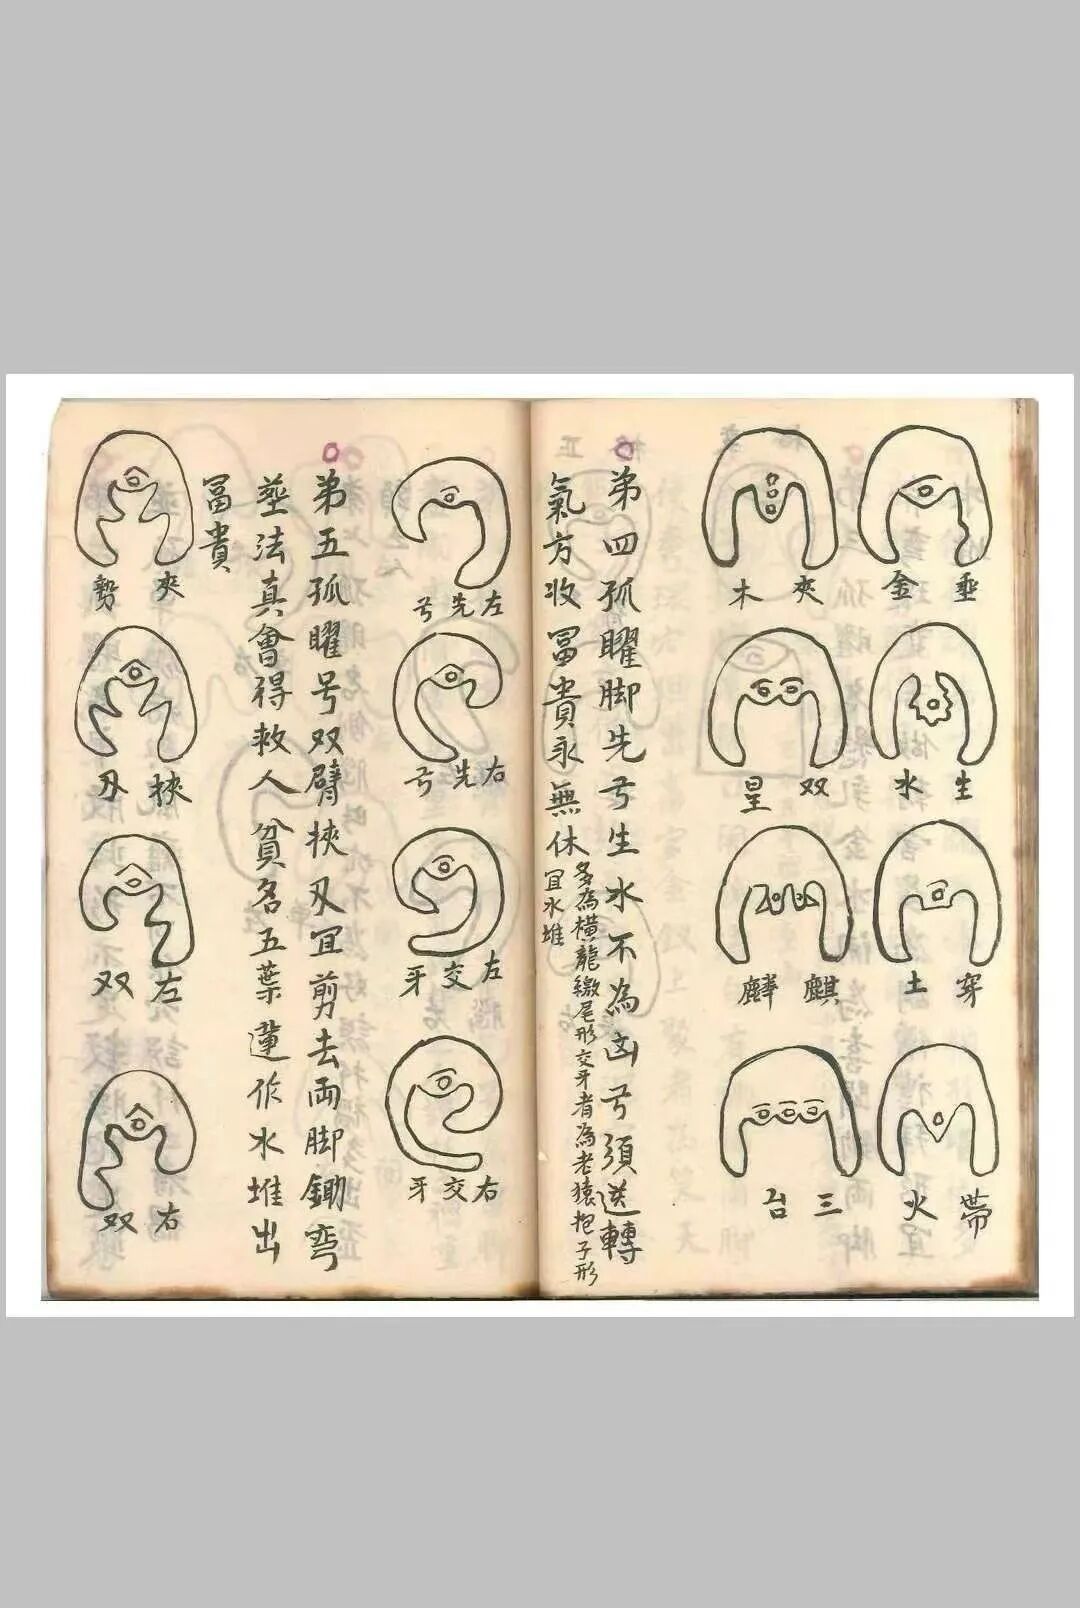 垂金
夾木
生水
双星
穿土
麒麟
帶火
三台
第四孤曜脚先弓生水不為凶弓須送轉
氣方收冨貴永無休
多為橫龍繳尾形交牙者為老猿抱子形
宜水堆
左先弓
右先弓
左交牙
右交牙
第五孤曜号双臂挾刄宜剪去両脚鋤弯
塟法真會得救人貧名五葉蓮作水堆出
冨貴
夾勢
挾刄
左双
右双